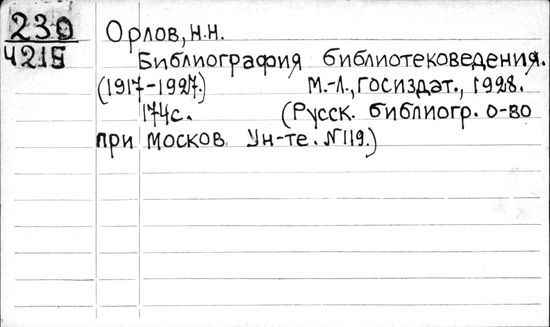 230
4215
Орлов, Н.Н.
Библиография библиотековедения.
(1917-1927.) М.-Л., Госиздат., 1928.
174с. (Русск. библиогр. о-во
при Москов. Ун-те. №119.)